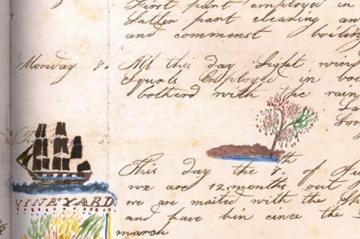 First part employed in
Latter part clearing an
and commenst boiling
Monday 8. All this day light wing
Squals Employed in boi
botherd with the rain
La
for
This day the 8. of
we are 12 months out of
we are maited with the Sh
and have bin cince the
march
VINEYARD